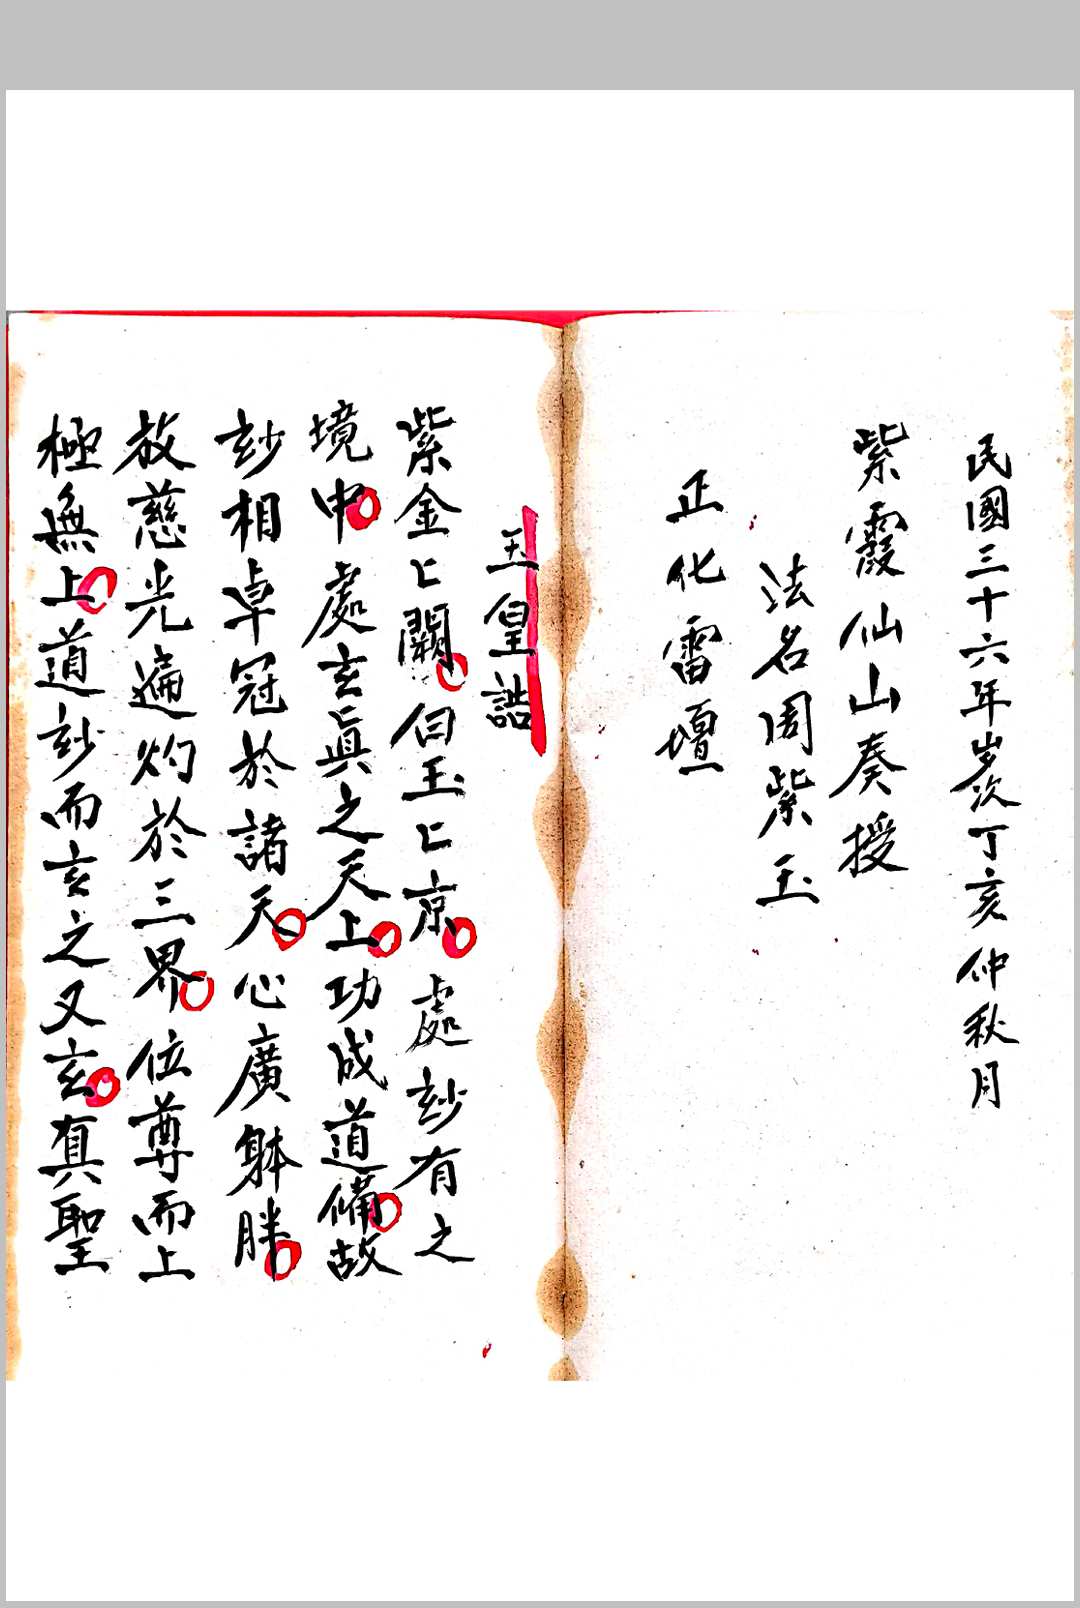 民國三十六年岁次丁亥仲秋月
紫霞仙山奏授
法名周紫玉
正化雷壇
玉皇誥
紫金匕闕曰玉匕京處玅有之
境中處玄眞之天上功成道備故
玅相卓冠於諸天心廣躰胖
放慈光遍灼於三界位尊而上
極無上道玅而玄之又玄真聖